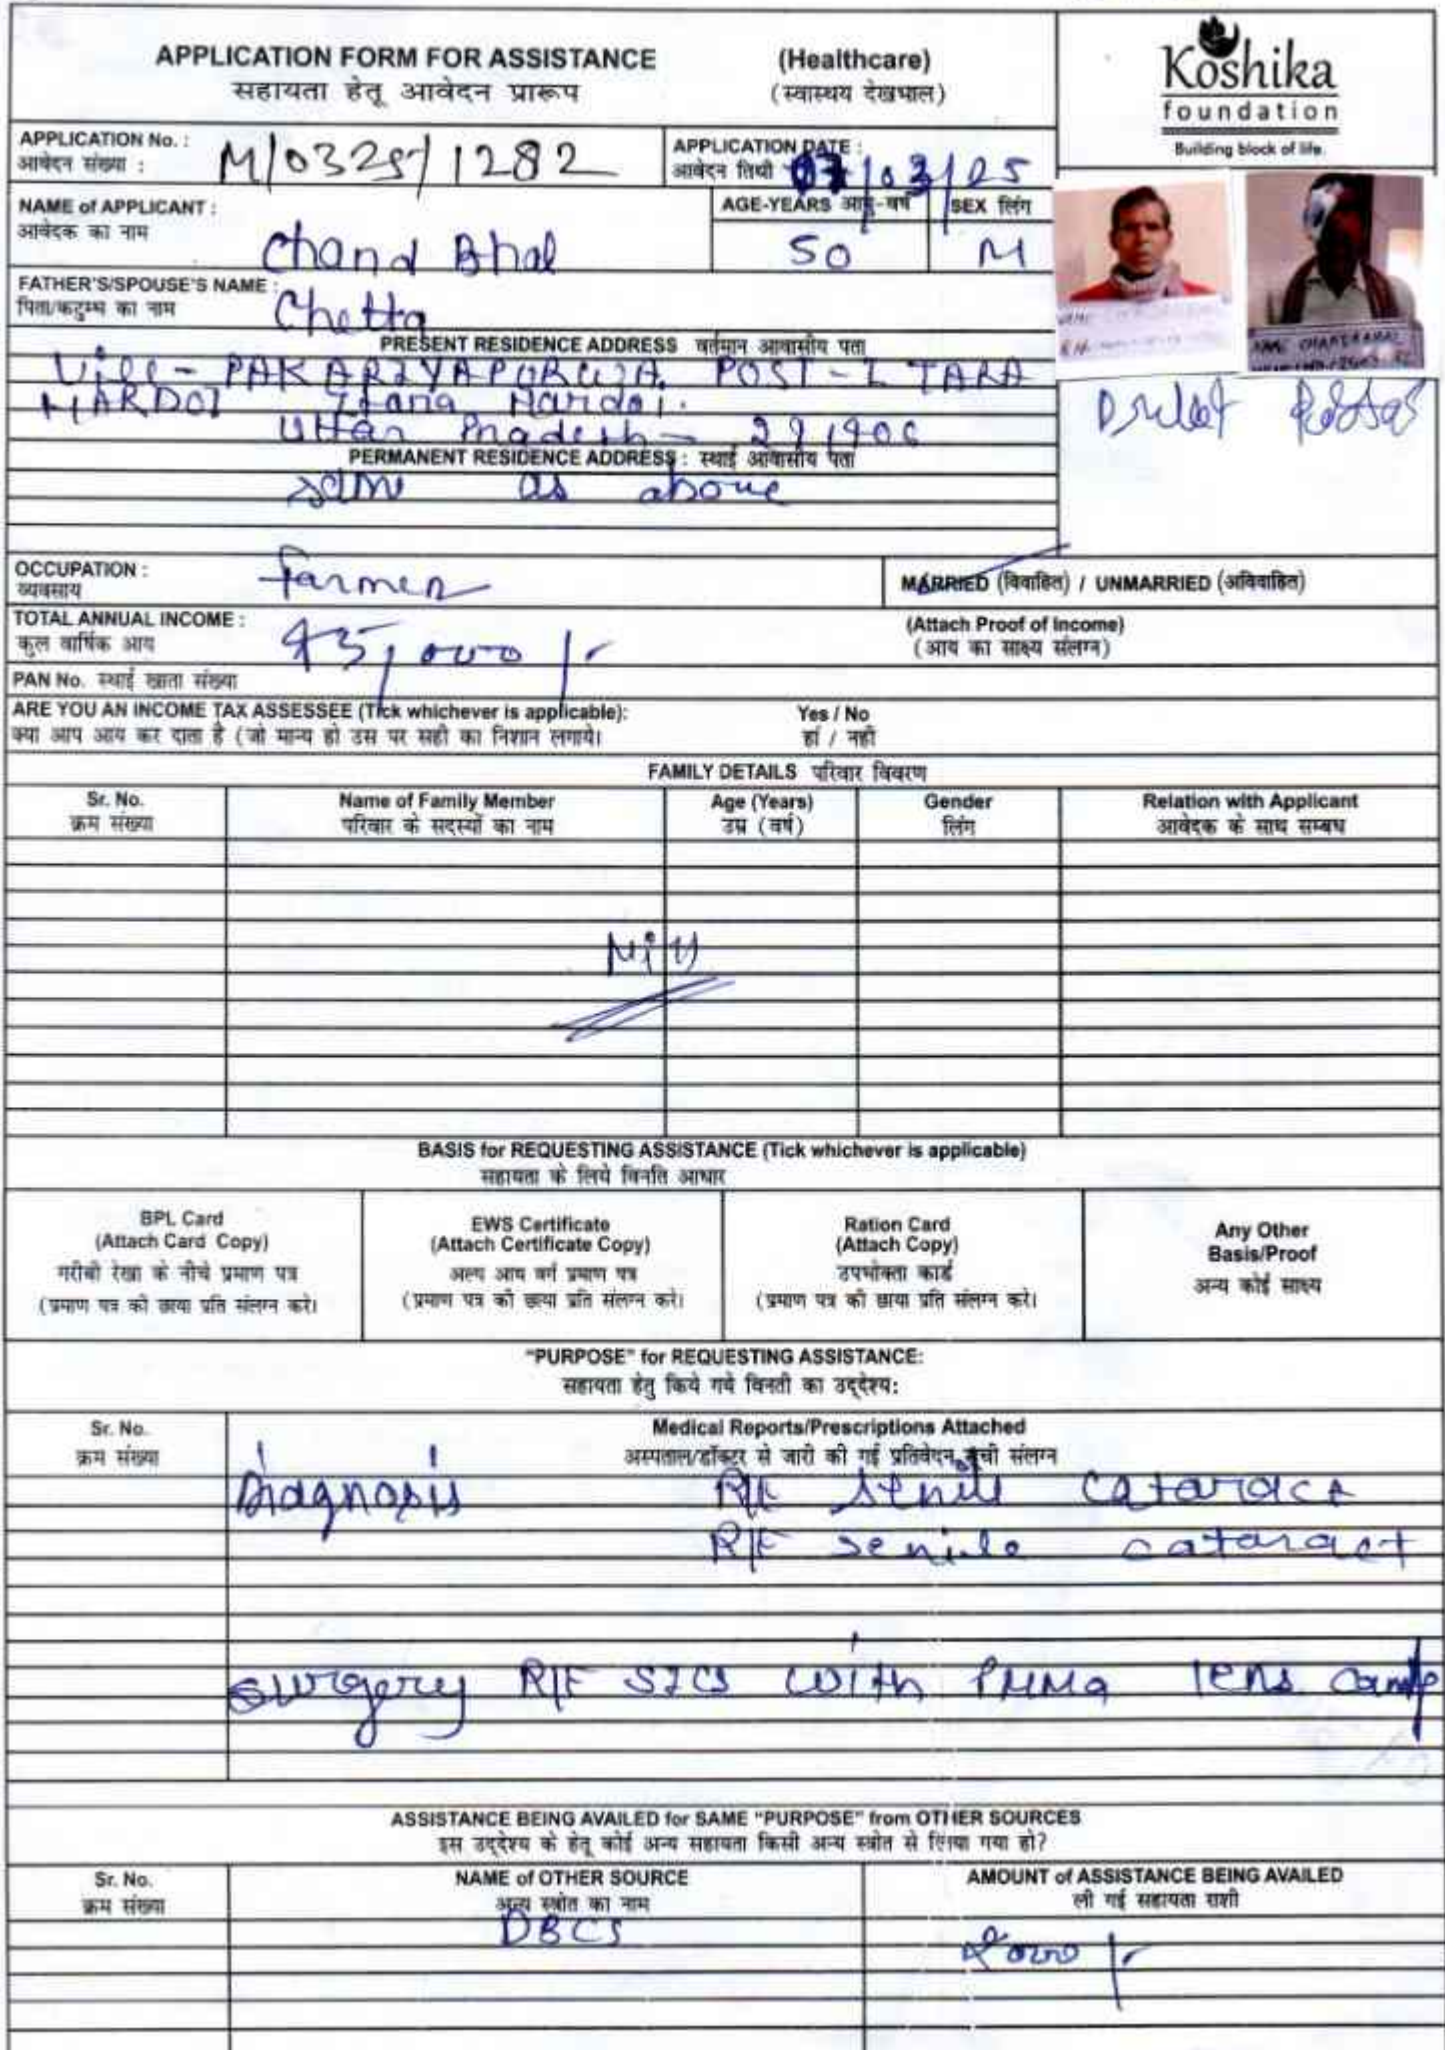 APPLICATION FORM FOR ASSISTANCE (Healthcare)
सहायता हेतू आवेदन प्रारूप (स्वास्थय देखभाल)
Koshika
foundation
Building block of life.
APPLICATION No. : M/0325/1282
आवेदन संख्या :
APPLICATION DATE : 07/03/25
आवेदन तिथी
NAME of APPLICANT : Chand Bhal
आवेदक का नाम
AGE-YEARS आयु-वर्ष SEX लिंग
50 M
FATHER'S/SPOUSE'S NAME : Chetta
पिता/कटुम्भ का नाम
PRESENT RESIDENCE ADDRESS वर्तमान आवासीय पता
Vill- PAKARIYAPURWA. POST - ITARA
HARDOI Hardoi.
Uttar Pradesh -
PERMANENT RESIDENCE ADDRESS : स्थाई आवासीय पता
same as above
OCCUPATION : farmer
व्यवसाय
MARRIED (विवाहित) / UNMARRIED (अविवाहित)
TOTAL ANNUAL INCOME :
कुल वार्षिक आय
(Attach Proof of Income)
(आय का साक्ष्य संलग्न)
PAN No. स्थाई खाता संख्या
ARE YOU AN INCOME TAX ASSESSEE (Tick whichever is applicable): Yes / No
क्या आप आय कर दाता है (जो मान्य हो उस पर सही का निशान लगाये। हां / नही
FAMILY DETAILS परिवार विवरण
Sr. No. Name of Family Member Age (Years) Gender Relation with Applicant
क्रम संख्या परिवार के सदस्यों का नाम उम्र (वर्ष) लिंग आवेदक के साथ सम्बध
Nill
BASIS for REQUESTING ASSISTANCE (Tick whichever is applicable)
सहायता के लिये विनति आधार
BPL Card
(Attach Card Copy)
गरीबी रेखा के नीचे प्रमाण पत्र
(प्रमाण पत्र की छाया प्रति संलग्न करे।
EWS Certificate
(Attach Certificate Copy)
अल्प आय वर्ग प्रमाण पत्र
(प्रमाण पत्र की छाया प्रति संलग्न करे।
Ration Card
(Attach Copy)
उपभोक्ता कार्ड
(प्रमाण पत्र की छाया प्रति संलग्न करे।
Any Other
Basis/Proof
अन्य कोई साक्ष्य
"PURPOSE" for REQUESTING ASSISTANCE:
सहायता हेतु किये गये विनती का उद्देश्य:
Sr. No. Medical Reports/Prescriptions Attached
क्रम संख्या अस्पताल/डॉक्टर से जारी की गई प्रतिवेदन सूची संलग्न
Diagnosis R/E senile cataract
R/E senile cataract
surgery R/E SICS with PMMA lens camp
ASSISTANCE BEING AVAILED for SAME "PURPOSE" from OTHER SOURCES
इस उद्देश्य के हेतू कोई अन्य सहायता किसी अन्य स्त्रोत से लिया गया हो?
Sr. No. NAME of OTHER SOURCE AMOUNT of ASSISTANCE BEING AVAILED
क्रम संख्या अन्य स्त्रोत का नाम ली गई सहायता राशी
DBCS 2000/-